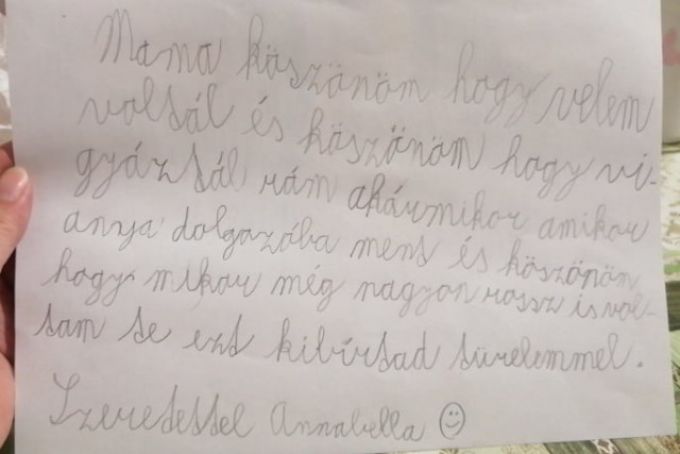 Mama köszönöm hogy velem
voltál és köszönöm hogy vi-
gyáztál rám akármikor amikor
anya dolgozóba ment és köszönöm
hogy mikor még nagyon rossz is vol-
tam te ezt kibírtad türelemmel.
Szeretettel Annabella ☺